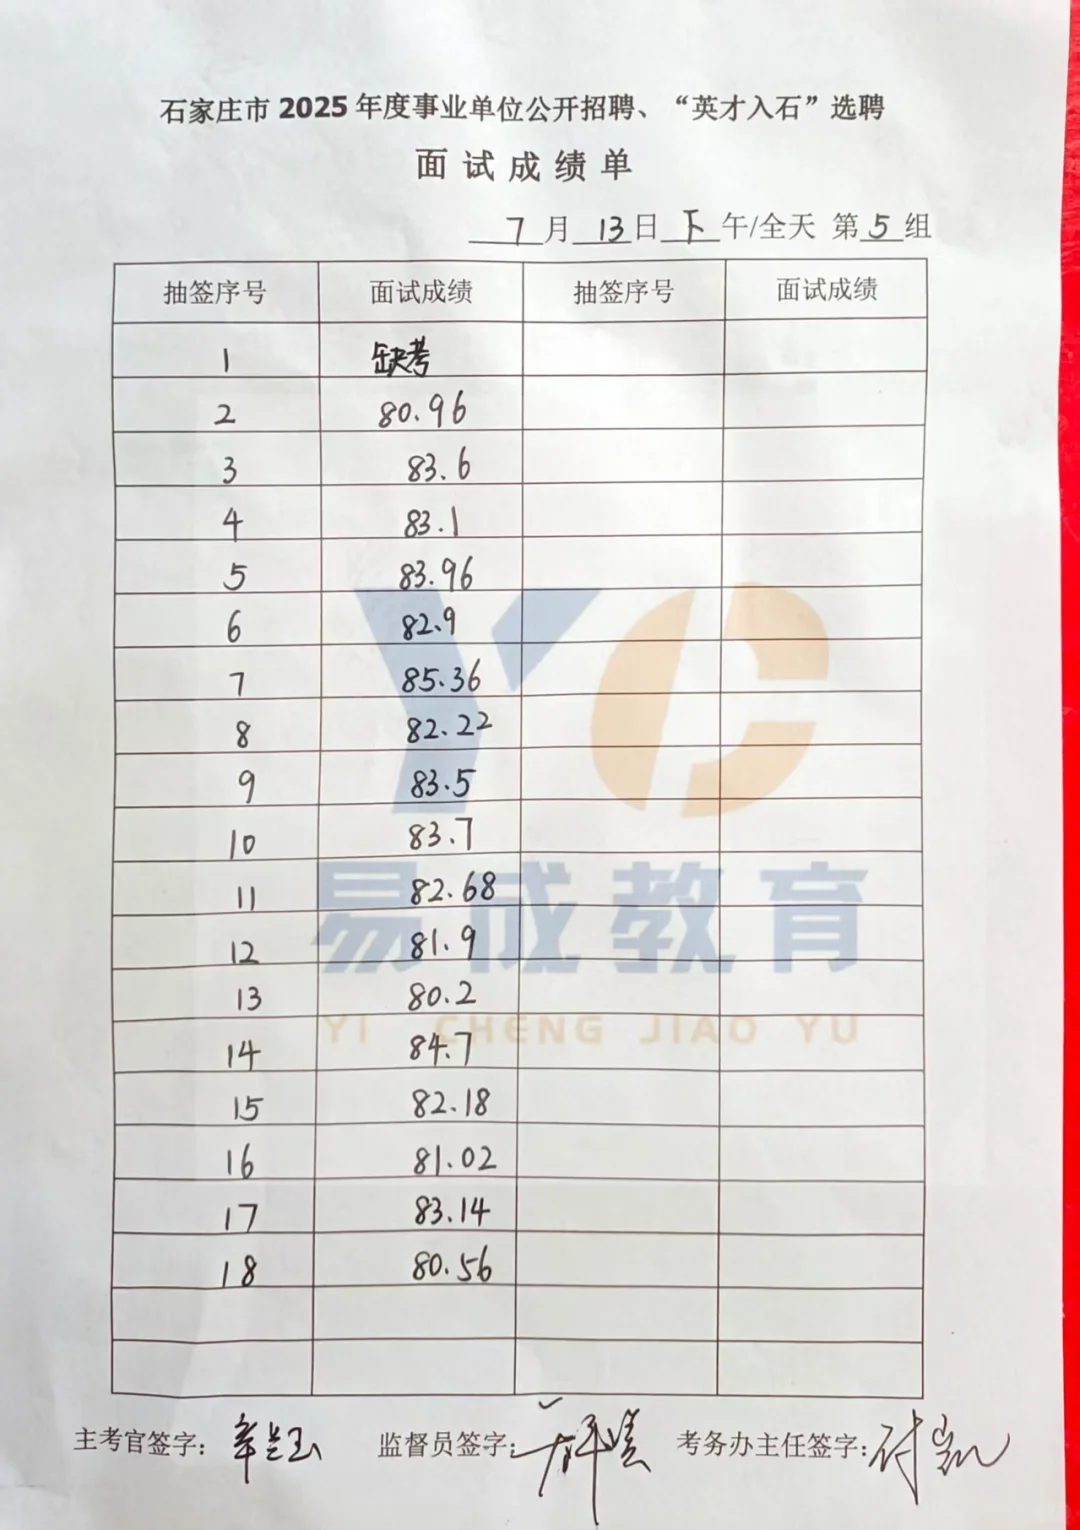 石家庄市 2025 年度事业单位公开招聘、“英才入石”选聘
面试成绩单
7月13日下午/全天 第5组
抽签序号 面试成绩 抽签序号 面试成绩
1 缺考
2 80.96
3 83.6
4 83.1
5 83.96
6 82.9
7 85.36
8 82.22
9 83.5
10 83.7
11 82.68
12 81.9
13 80.2
14 84.7
15 82.18
16 81.02
17 83.14
18 80.56
YC
易成教育
YI CHENG JIAO YU
主考官签字: 监督员签字: 考务办主任签字: